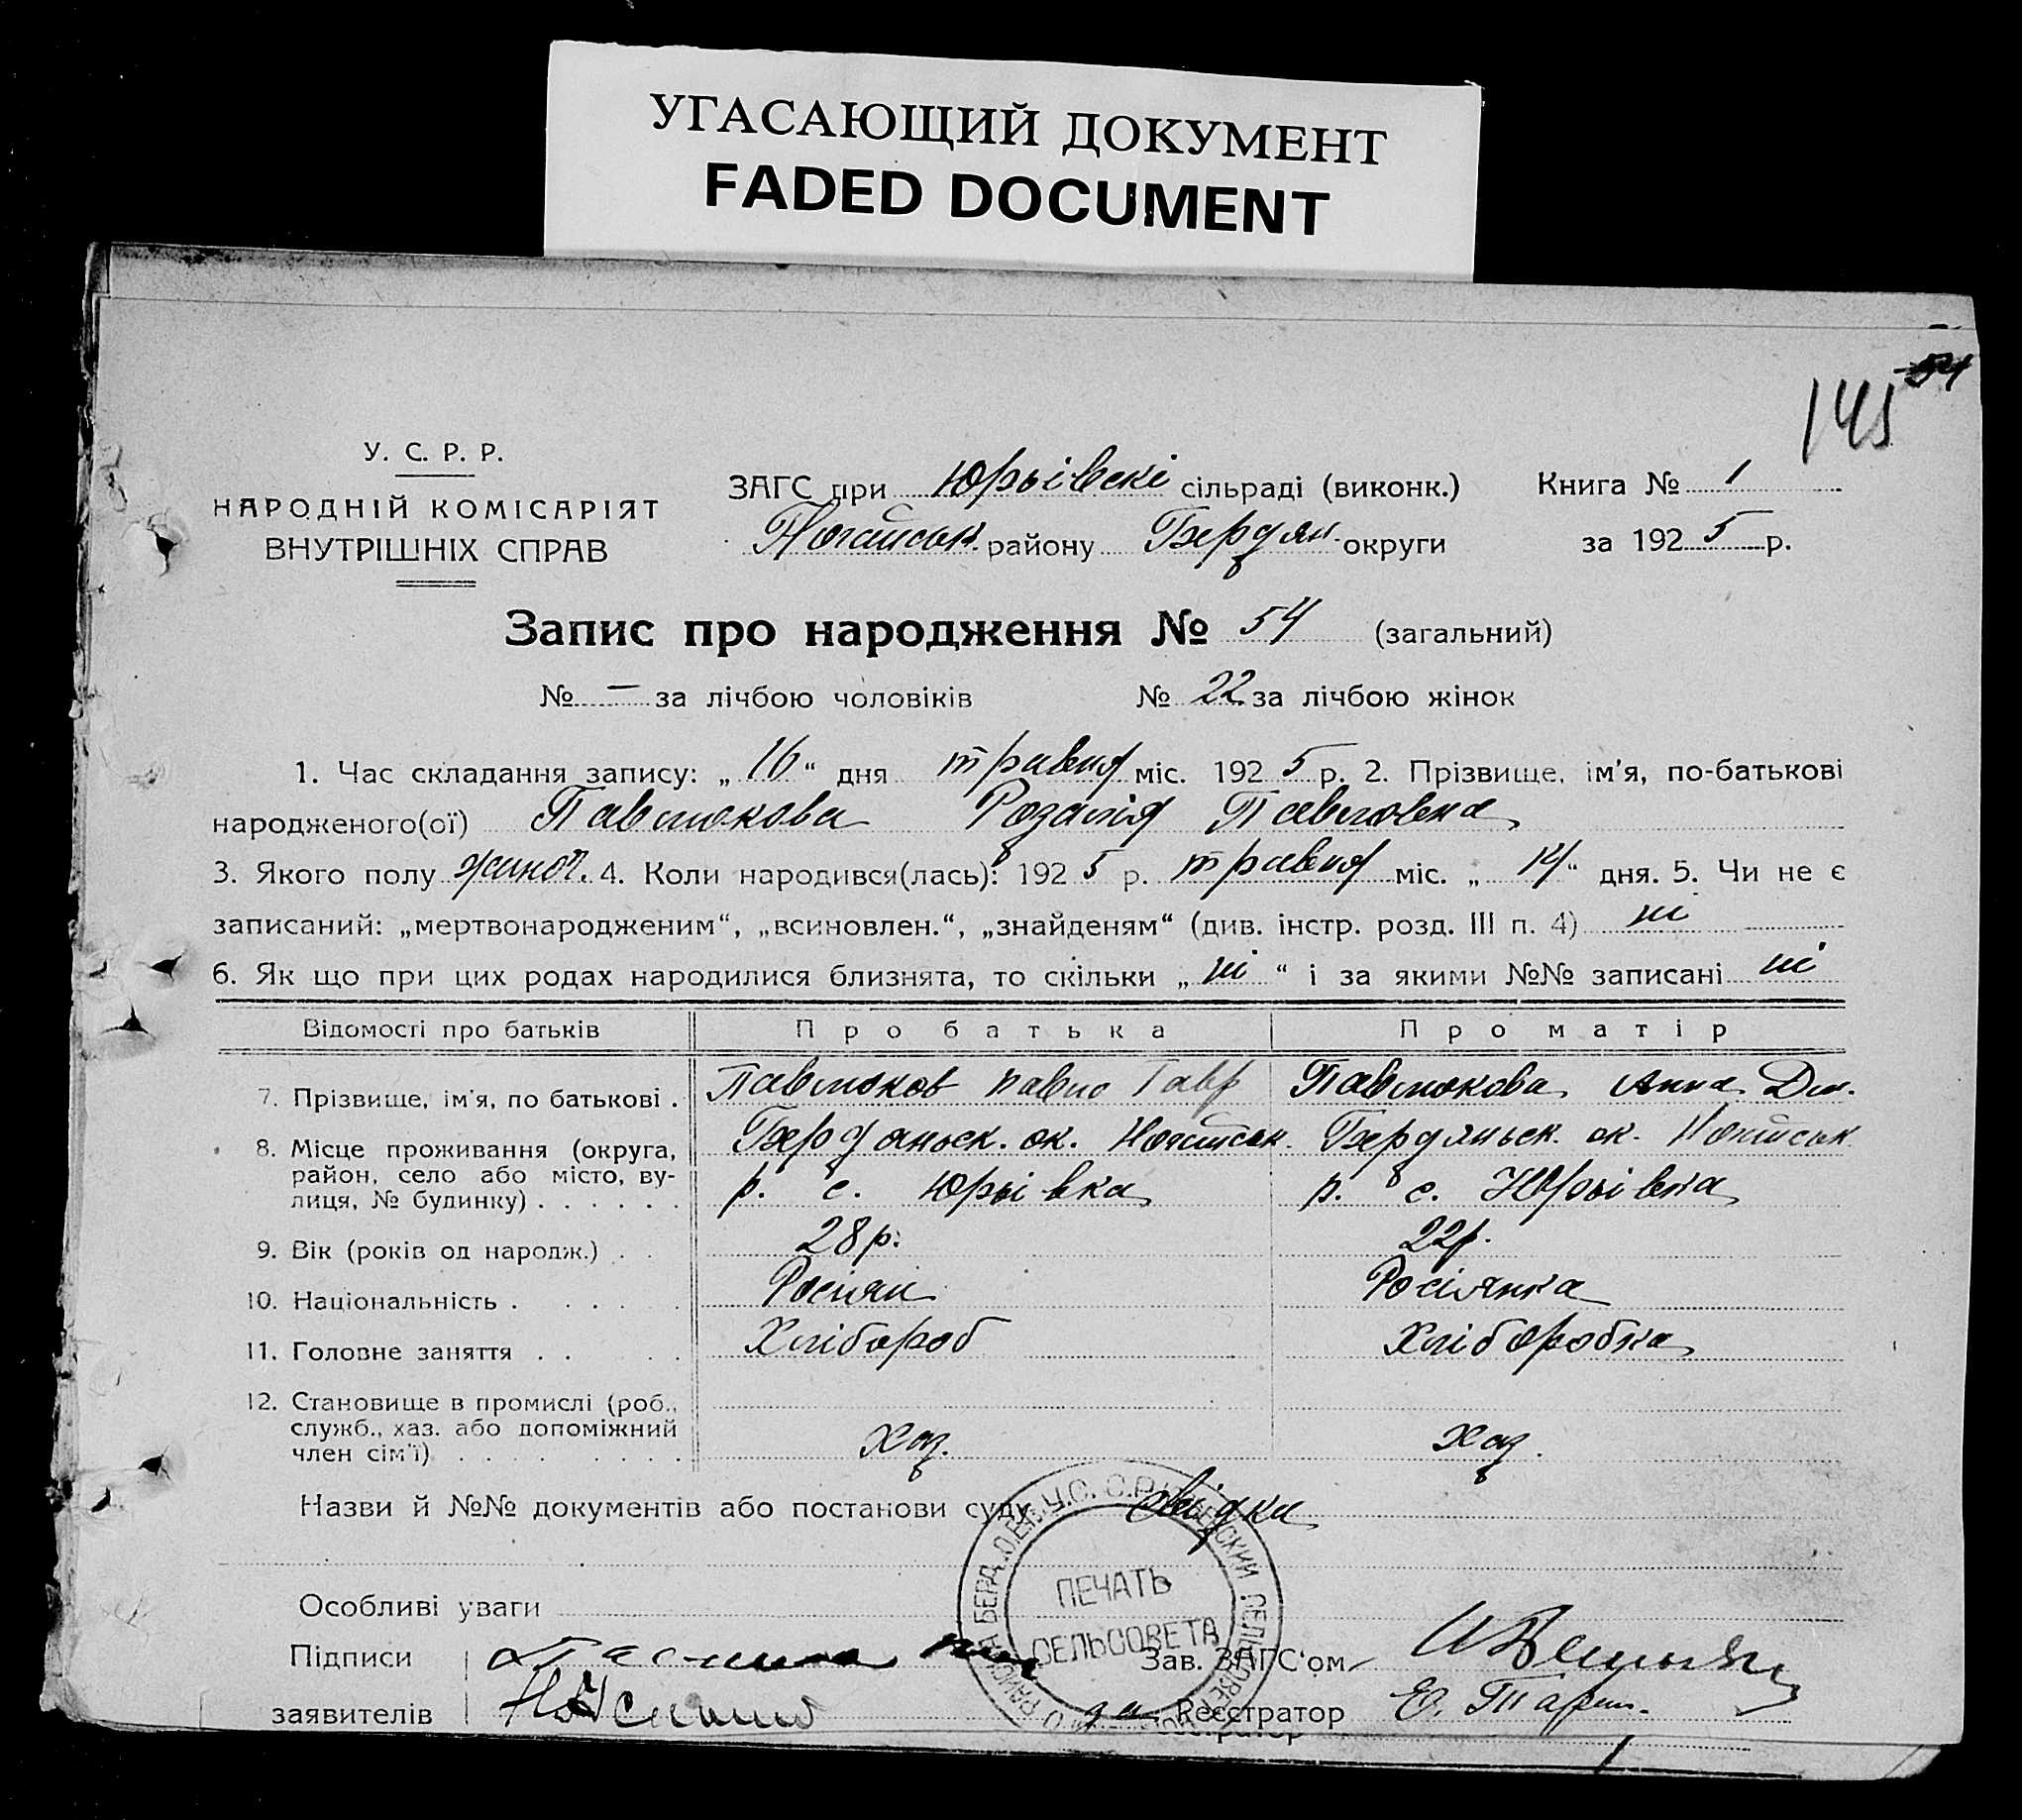 УГАСАЮЩИЙ ДОКУМЕНТ
FADED DOCUMENT
54
145
У. С. Р. Р.
НАРОДНІЙ КОМІСАРІЯТ
ВНУТРІШНІХ СПРАВ
ЗАГС при Юрьівскі сільраді (виконк.) Книга № 1
Ногайськ. району Бердян. округи за 1925 р.
Запис про народження № 54 (загальний)
№ — за лічбою чоловіків № 22 за лічбою жінок
1. Час складання запису: „16“ дня травня міс. 1925 р. 2. Прізвище, ім'я, по-батькові
народженого(ої) Павлюкова Розалія Павловна
3. Якого полу жиноч. 4. Коли народився(лась): 1925 р. травня міс. „14“ дня. 5. Чи не є
записаний: „мертвонародженим“, „всиновлен.“, „знайденям“ (див. інстр. розд. III п. 4) ні
6. Як що при цих родах народилися близнята, то скільки „ні“ і за якими №№ записані ні
Відомості про батьків Про батька Про матір
7. Прізвище, ім'я, по батькові . Павлюков Павло Гавр Павлюкова Анна Дм.
8. Місце проживання (округа, район, село або місто, ву-лиця, № будинку) . . . . . . Бердяньск. ок. Ногайськ. р. с. Юрьівка Бердяньск. ок. Ногайськ р. с. Юрьівка
9. Вік (років од народж.) . . 28 р. 22 р.
10. Національність . . . . . Росіян Росіянка
11. Головне заняття . . . . Хлібороб Хліборобка
12. Становище в промислі (роб., служб., хаз. або допоміжний член сім'ї) . . . . . . . . . Хаз. Хаз.
Назви й №№ документів або постанови суду свідки
Особливі уваги
ПЕЧАТЬ
СЕЛЬСОВЕТА
Підписи
Зав. ЗАГС'ом
заявителів
за Реєстратор Ю. Таран.